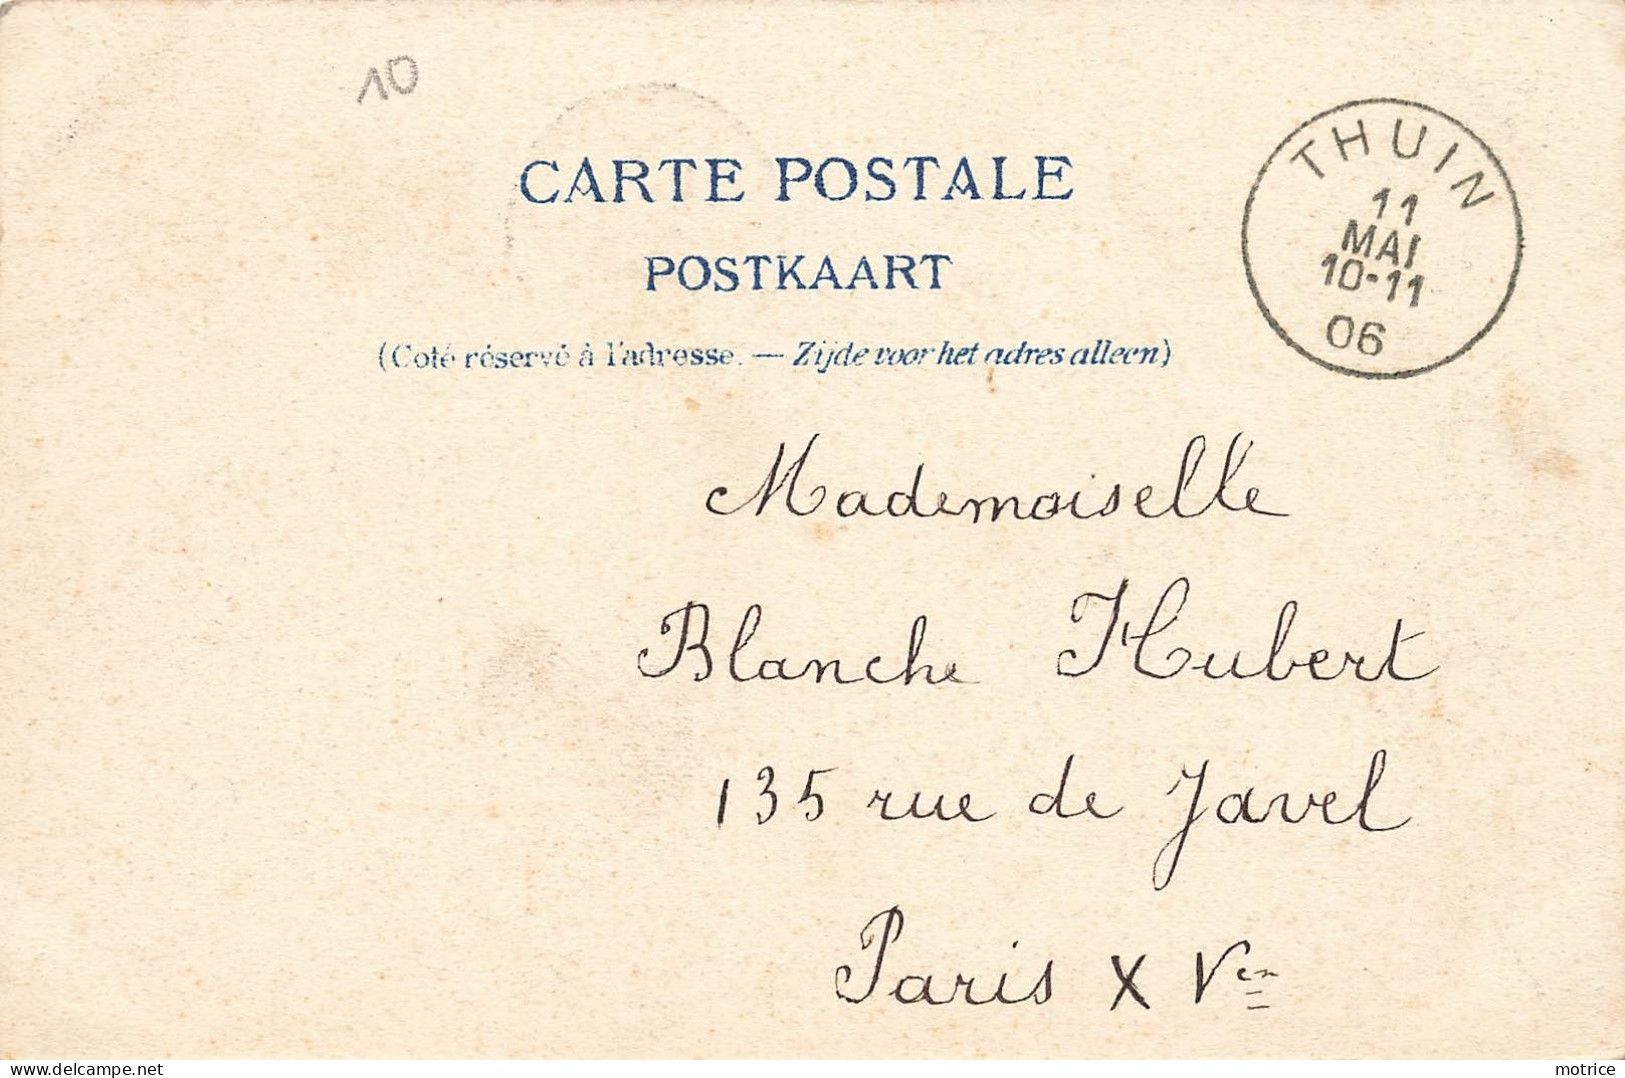 10
CARTE POSTALE
POSTKAART
(Coté réservé à l'adresse. — Zijde voor het adres alleen)
THUIN
11
MAI
10-11
06
Mademoiselle
Blanche Hubert
135 rue de Javel
Paris XV en
delcampe.net
motrice